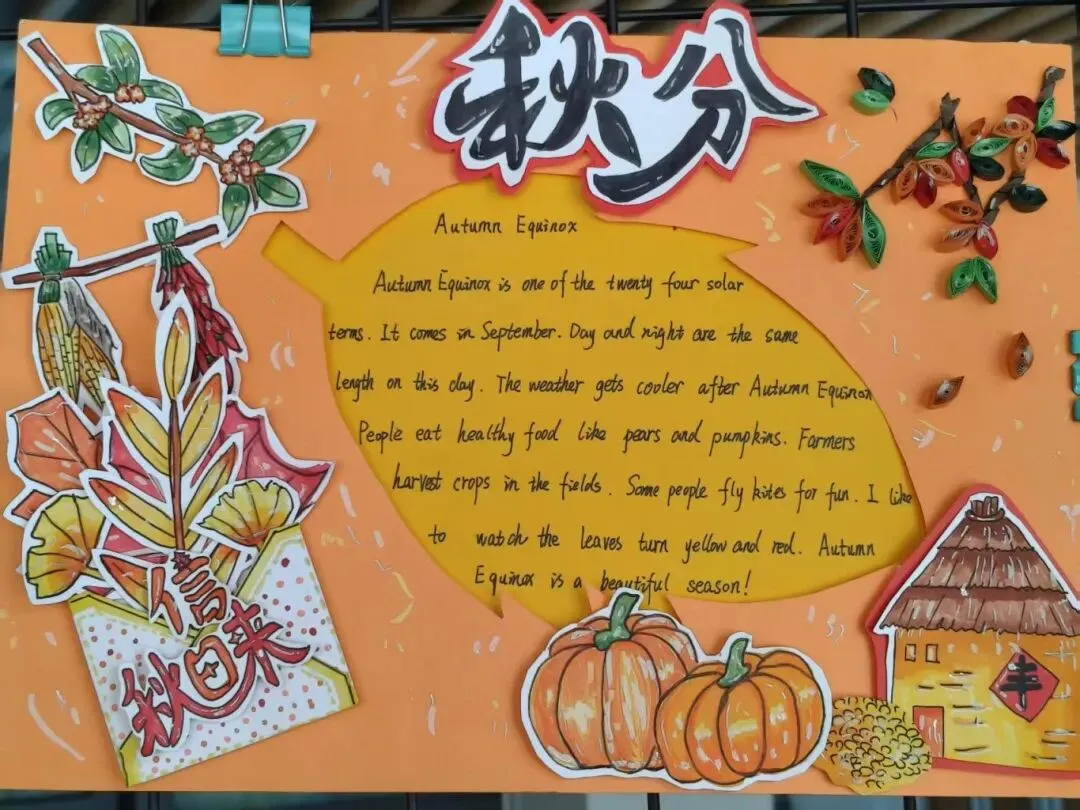 秋分
Autumn Equinox
Autumn Equinox is one of the twenty four solar
terms. It comes in September. Day and night are the same
length on this day. The weather gets cooler after Autumn Equinox
People eat healthy food like pears and pumpkins. Farmers
harvest crops in the fields. Some people fly kites for fun. I like
to watch the leaves turn yellow and red. Autumn
Equinox is a beautiful season!
秋日来信
丰